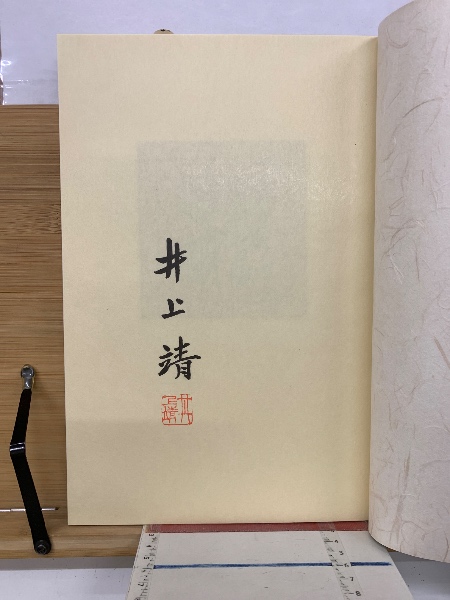 井上靖